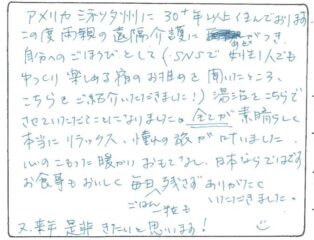 アメリカ ミネソタ州に 30+年以上くらしております
この度 両親の遠隔介護に めどがつき、
自分へのごほうびとして（SNSで 女性1人でも
ゆっくり 楽しめる宿のお担を 聞いたところ、
こちらを ご紹介いただきました！） 湯治をこちらで
させていただくことになりました。全てが素晴らしく
本当に リラックス、憧れの旅が叶いました。
心のこもった暖かい おもてなし、日本ならではです
お食事も おいしく 毎日 残さず ありがたく
ごはん一粒も いただきました。
又、来年 是非 きたいと 思います！